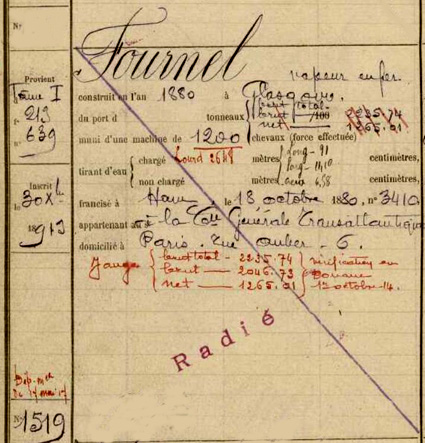 No
Fournel
vapeur en fer.
Provient
Tome I
fo 213
no 639
construit en l'an 1880 à Glasgow.
du port d tonneaux { brut total. 2235.74
brut /100
net 1265.01
muni d'une machine de 1200 chevaux (force effectuée)
tirant d'eau { chargé Lourd mètres centimètres,
non chargé mètres centimètres,
long - 91
larg - 11,10
creux 6,58
Inscrit
le 30 Xbre
1913
francisé à Havre, le 18 octobre 1880, no 3410
appartenant à la Cie Générale Transatlantique
domicilié à Paris. Rue Auber - 6.
Jauge { brut total - 2235.74 } vérification en
brut — 2046.73 Douane
net — 1265.01 12 octobre 14.
Radié
No 1519